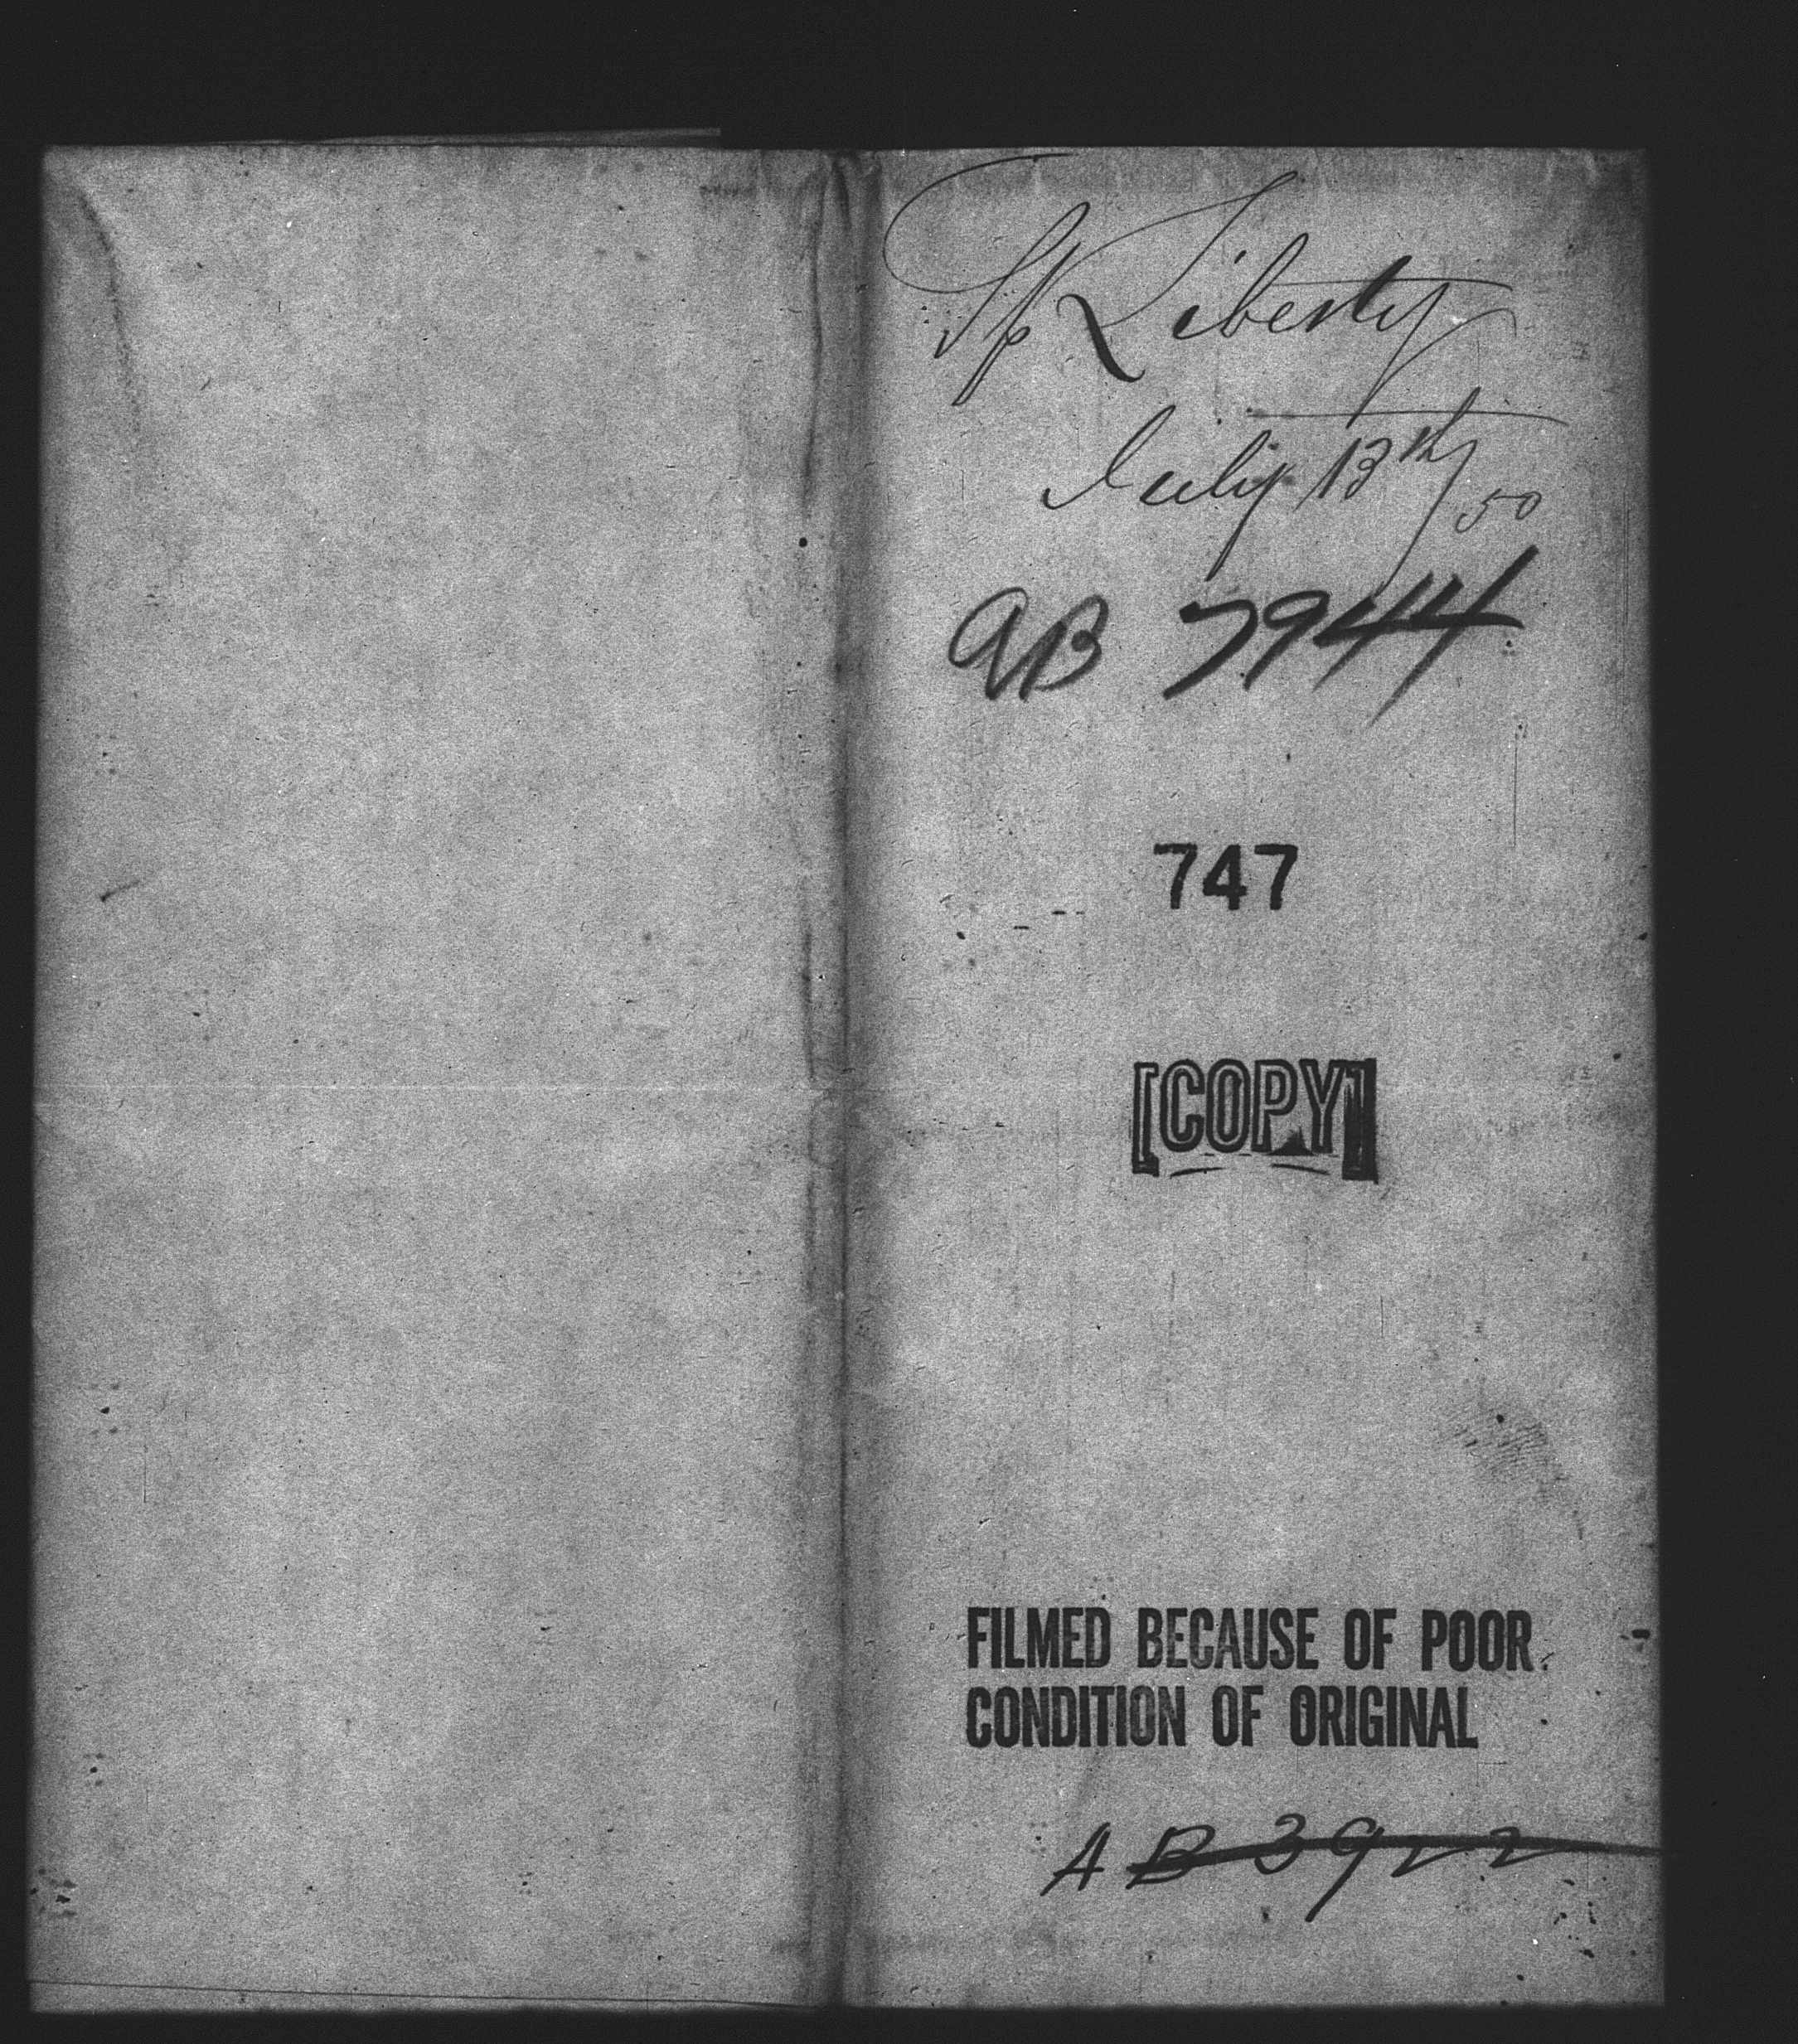 Sp Liberty
July 13th/50
AB 7944
747
[COPY]
FILMED BECAUSE OF POOR
CONDITION OF ORIGINAL
AB 3922